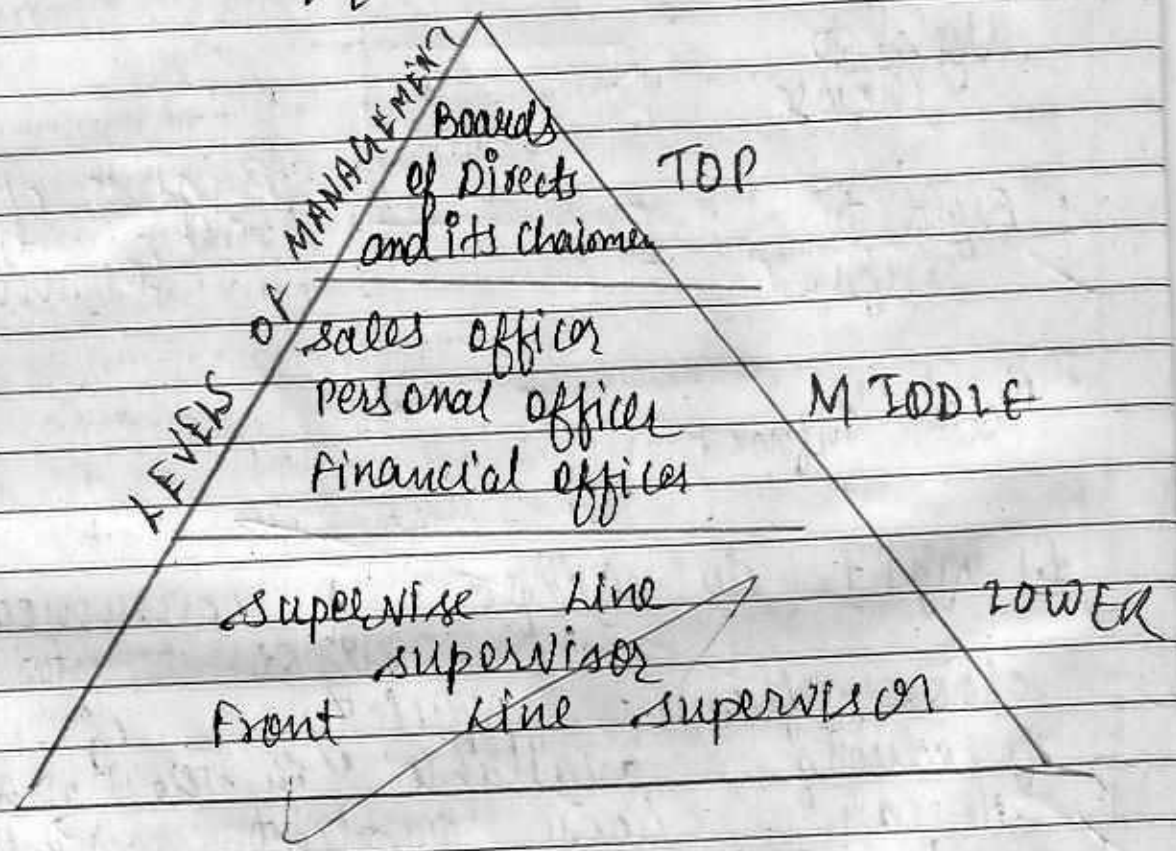 LEVELS OF MANAGEMENT
Boards
of Directs
and its Chairmen
TOP
sales officer
Personal officer
Financial officer
MIDDLE
supervise Line
supervisor
Front Line supervisor
LOWER